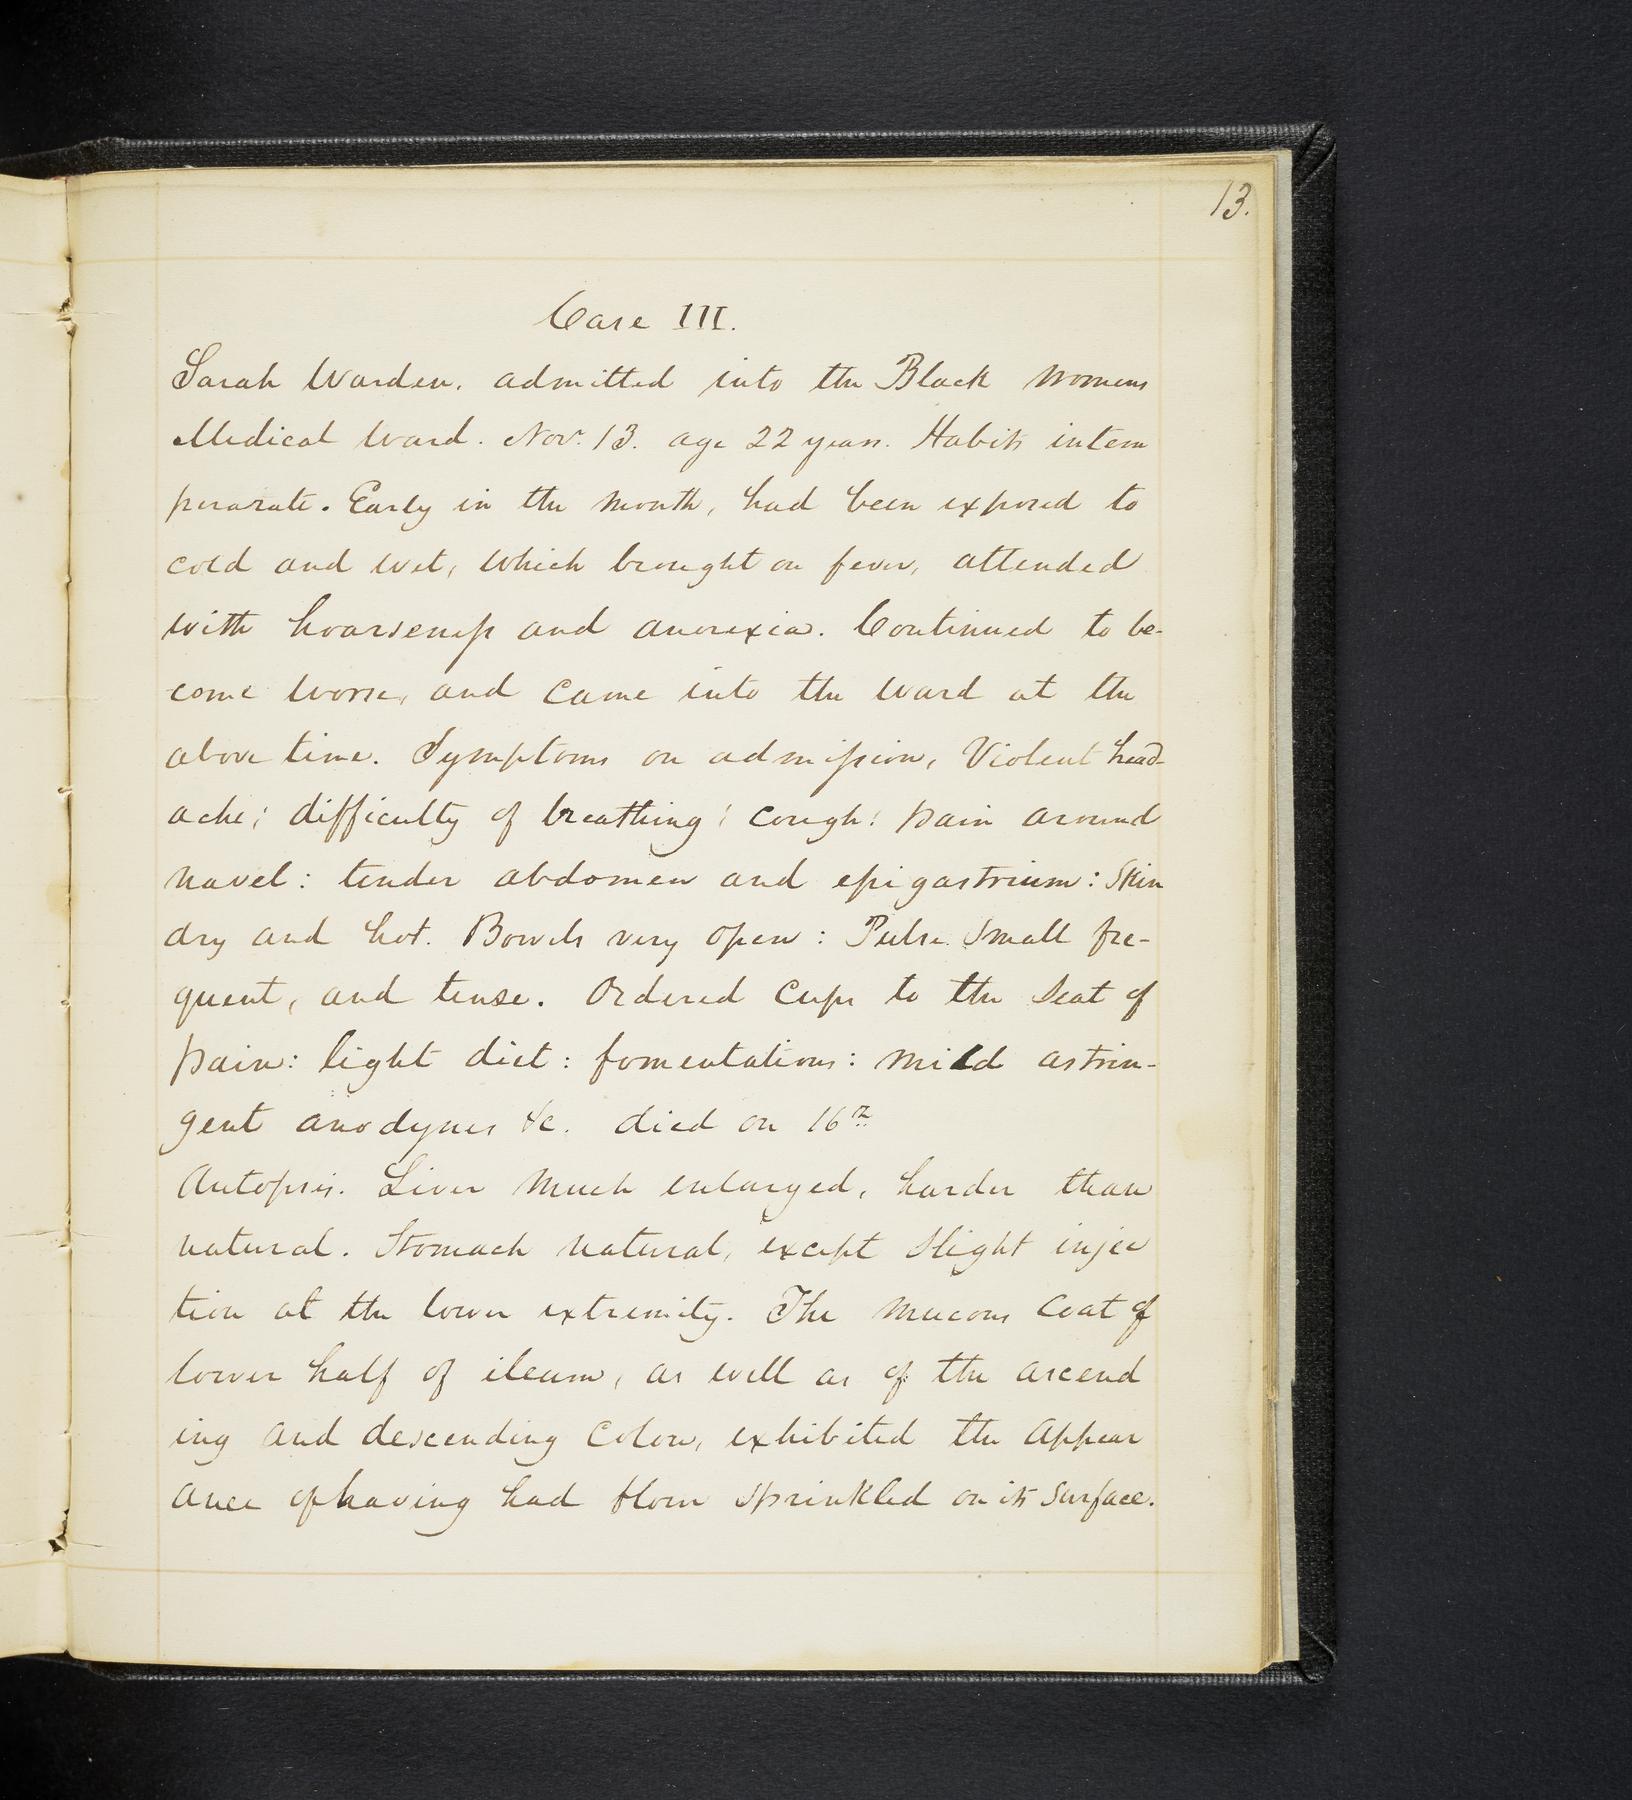 13.
Case III.
Sarah Warden, admitted into the Black Womens
Medical Ward. Nov. 13. age 22 years. Habits intem
perarate. Early in the month, had been exposed to
cold and wet, which brought on fever, attended
with hoarseness and anorexia. Continued to be-
come worse, and came into the ward at the
above time. Symptoms on admission, Violent head-
ache; difficulty of breathing; cough: pain around
navel: tender abdomen and epigastrium: skin
dry and hot. Bowels very open: Pulse small fre-
quent, and tense. Ordered cups to the seat of
pain: light diet: fomentations: mild astrin-
gent anodynes &c. died on 16th
Autopsis. Liver much enlarged, harder than
natural. Stomach natural, except slight injec
tion at the lower extremity. The mucous coat of
lower half of ileum, as well as of the ascend
ing and descending colon, exhibited the appear
ance of having had flour sprinkled on its surface.